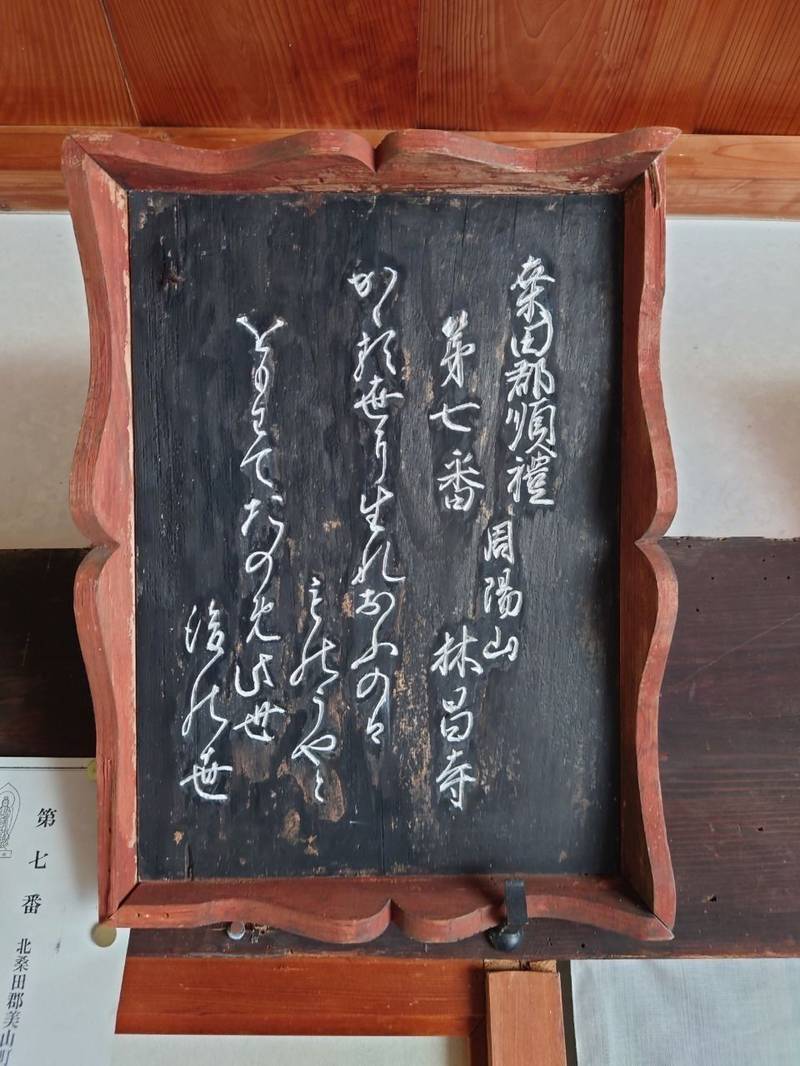 桑田郡順禮
第七番
周陽山
林昌寺
かゝる世に生れあふのも
みのうやと
をもわてたのめ此世
後の世
第七番
北桑田郡美山町